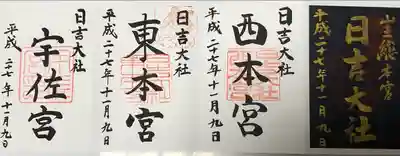 山王総本宮
日吉大社
平成二十七年十一月九日
日吉大社
西本宮
平成二十七年十一月九日
日吉大社
東本宮
平成二十七年十一月九日
日吉大社
宇佐宮
平成二七年十一月九日